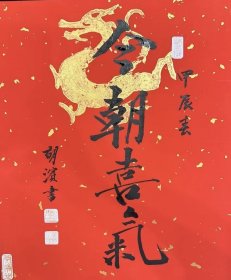 今朝喜氣
甲辰春
胡波書